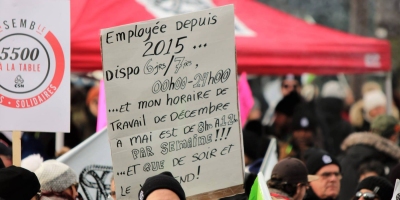 5500
À LA TABLE
Employée depuis
2015...
Dispo 6jrs/7jrs,
00h00-24h00
...Et mon horaire de
travail de décembre
à mai est de 8h à 12h
par semaine!!!
...Et que de soir et
le